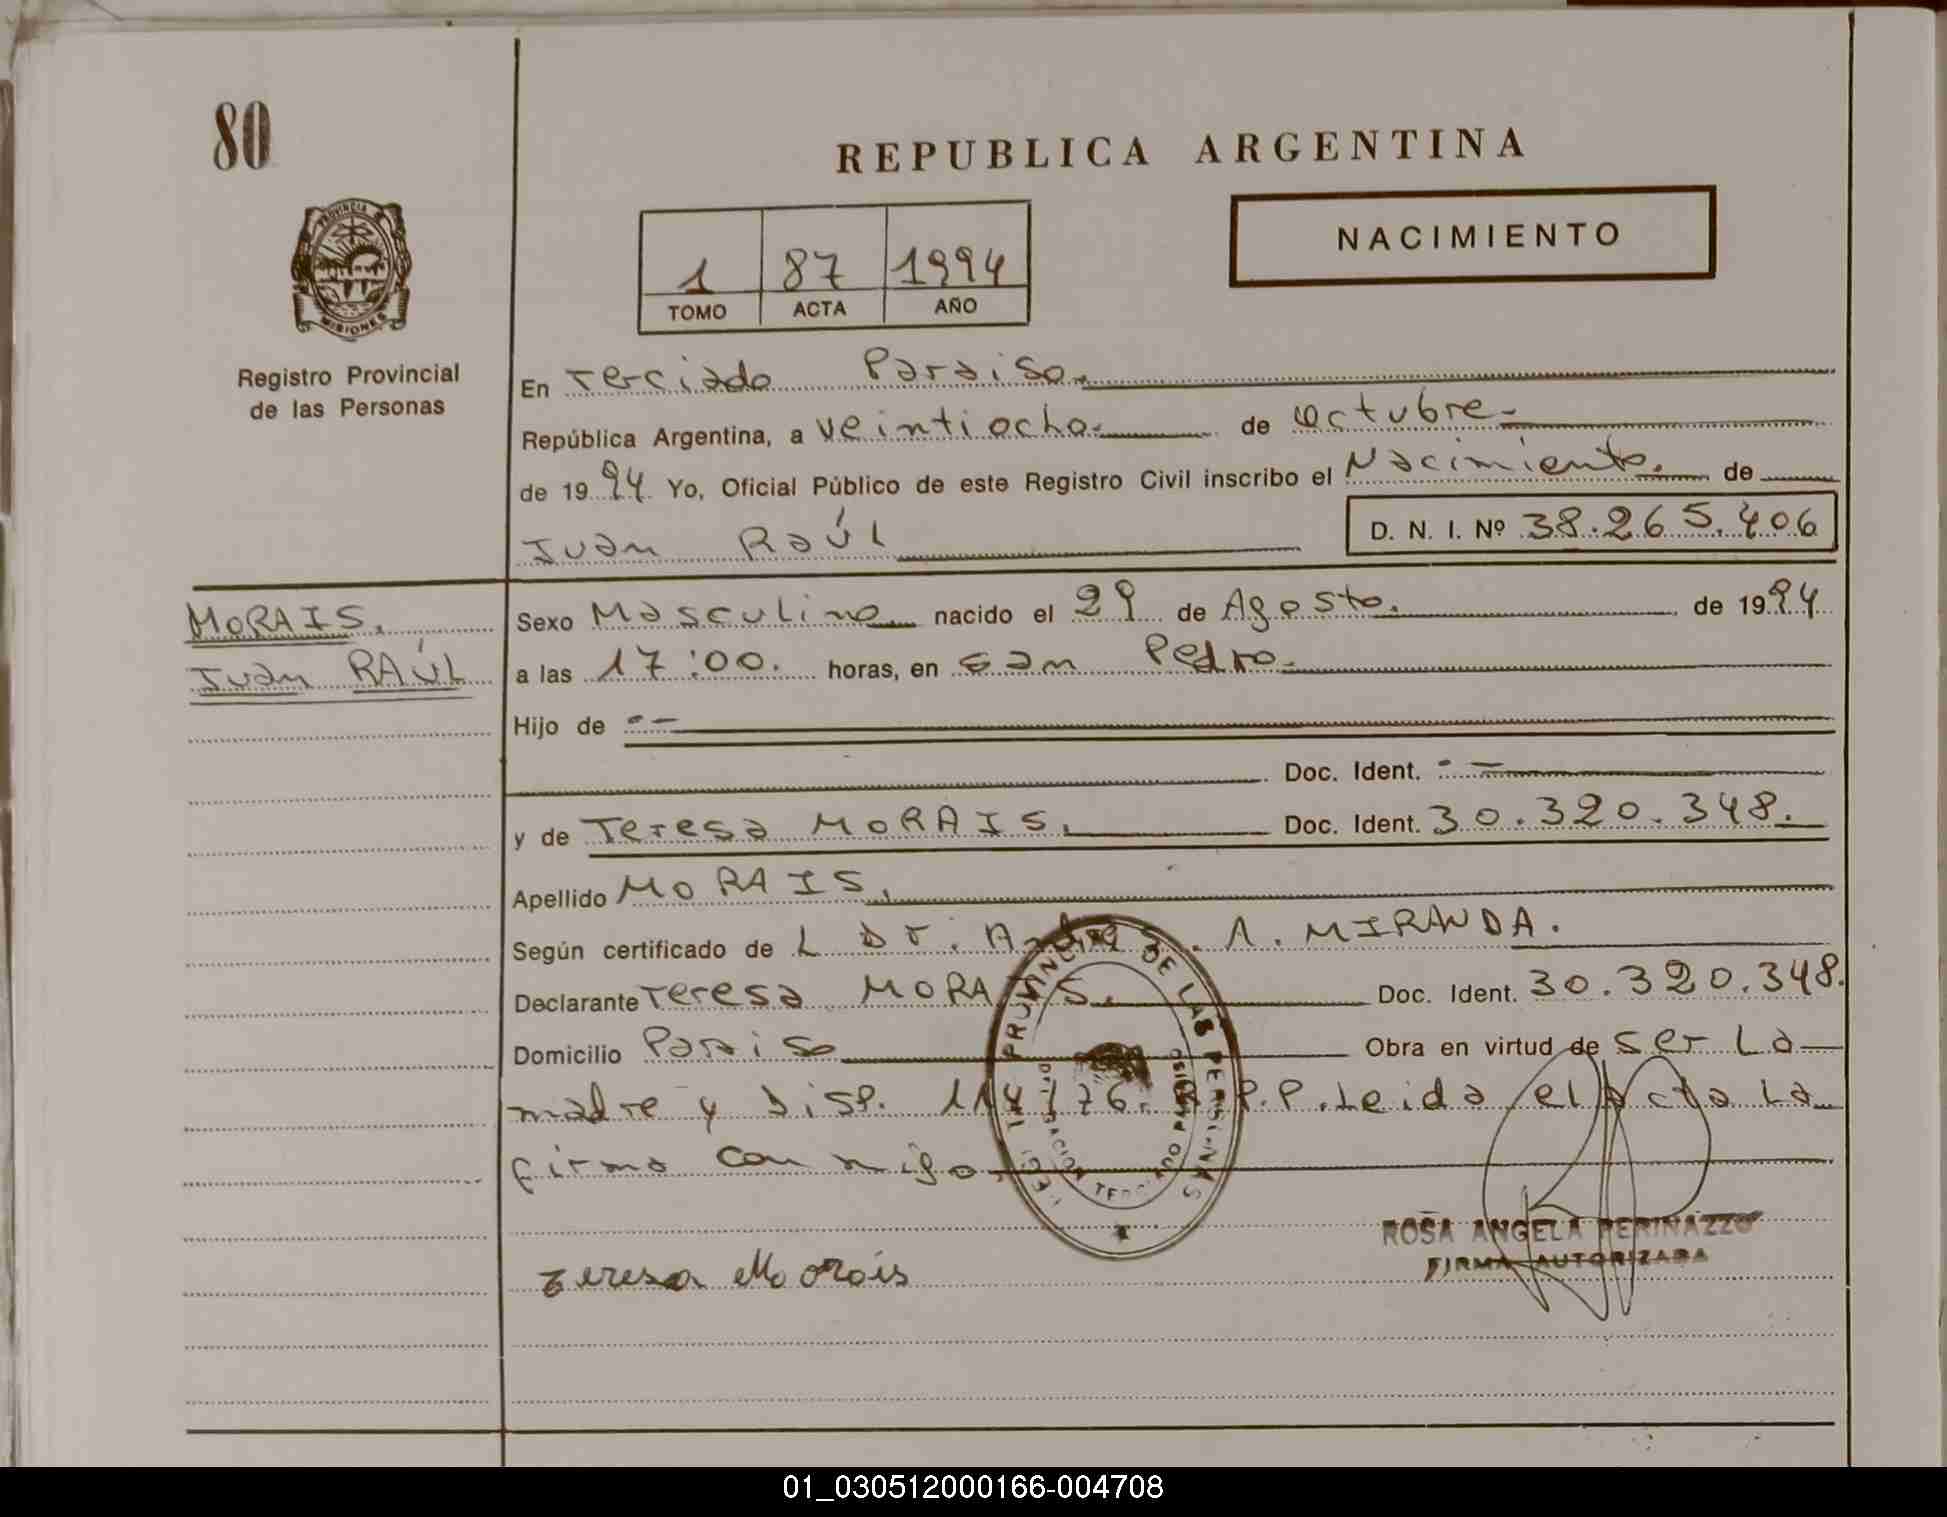 80
REPUBLICA ARGENTINA
NACIMIENTO
1 87 1994
TOMO ACTA AÑO
PROVINCIA
MISIONES
Registro Provincial
de las Personas
En Terciado Paraiso.
República Argentina, a veintiocho.- de octubre.-
de 1994 Yo, Oficial Público de este Registro Civil inscribo el Nacimiento. de
Juan RaÚl
D. N. I. Nº 38.265.406
MORAIS.
Juan RAÚL
Sexo Masculino nacido el 29 de Agosto. de 1994
a las 17:00. horas, en San Pedro.-
Hijo de --
Doc. Ident. --
y de Teresa MORAIS. Doc. Ident. 30.320.348.
Apellido MORAIS.
Según certificado de L Dr. Andres. A. MIRANDA.
Declarante Teresa MORAIS. Doc. Ident. 30.320.348.
Domicilio Paraiso Obra en virtud de ser La
madre y Disp. 114/76. R.P.P. Leida el Acta La
firma conmigo.
PROVINCIAL DE LAS PERSONAS
DELEGACION TERCIADO PARAISO
Teresa Morais
ROSA ANGELA PERINAZZO
FIRMA AUTORIZADA
01_030512000166-004708